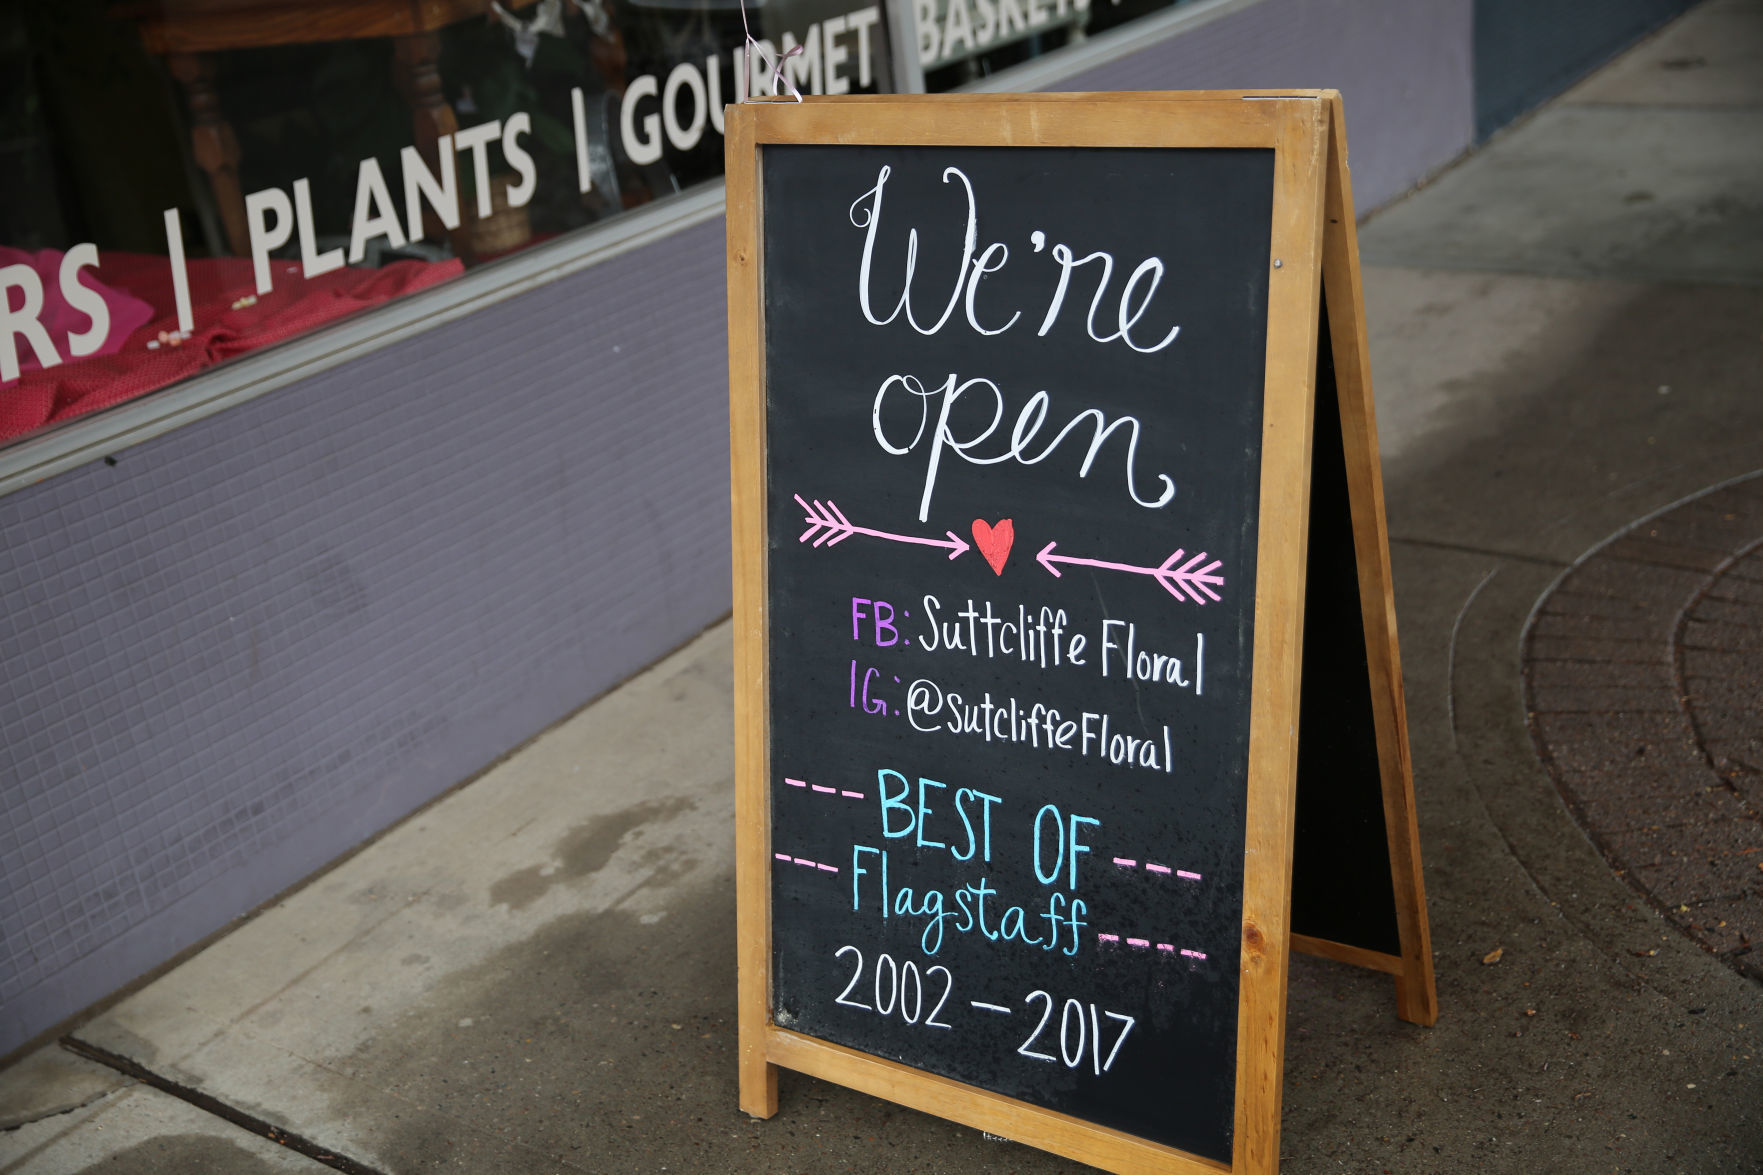 RS | PLANTS | GOURMET BASKETS
We're
open
FB: Suttcliffe Floral
IG: @sutcliffeFloral
BEST OF
Flagstaff
2002 - 2017